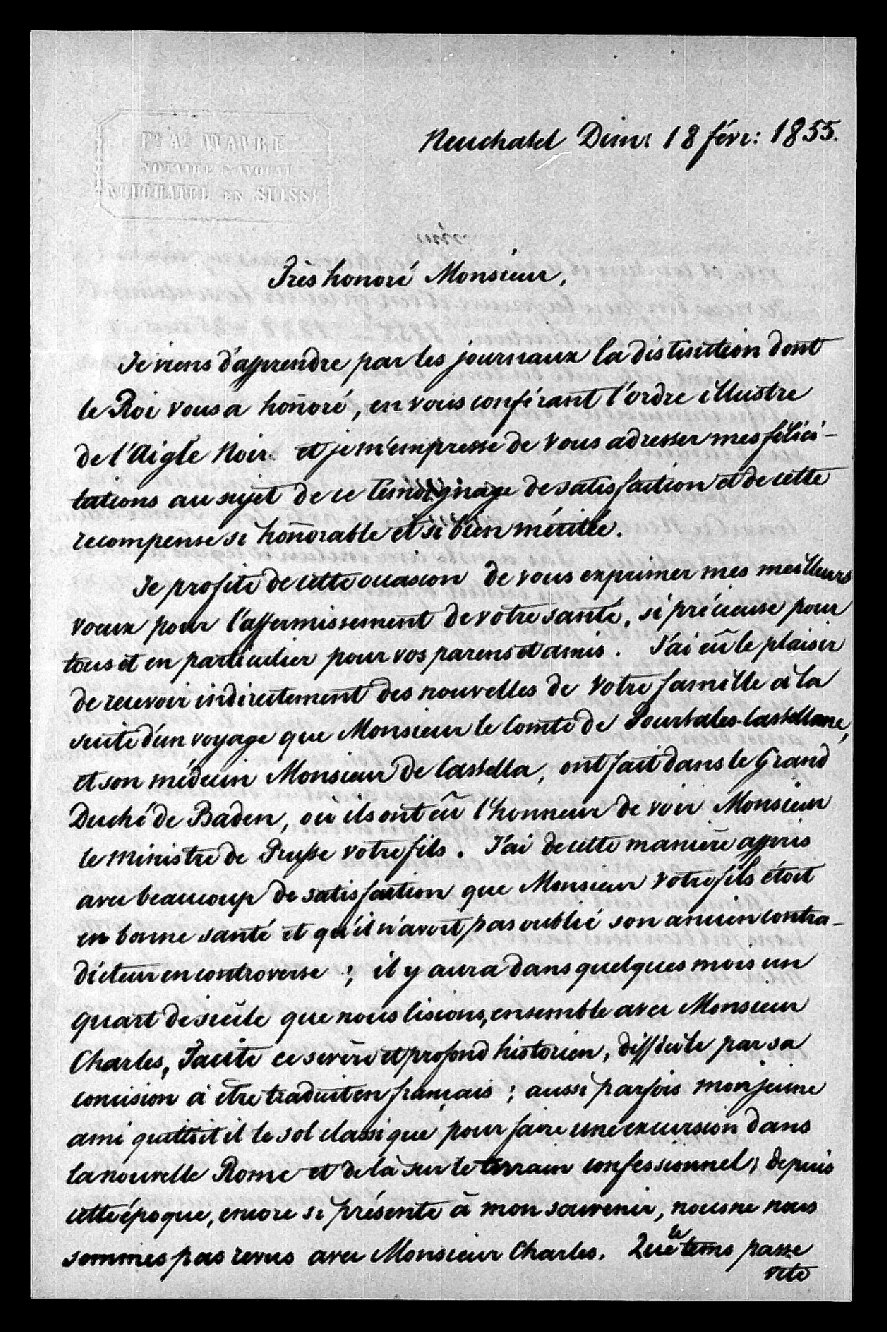 Fs Ae WAVRE
NOTAIRE & AVOCAT
NEUCHATEL EN SUISSE
Neuchatel Dim: 18 févr: 1855.
Très honoré Monsieur,
Je viens d'apprendre par les journaux la distinction dont
le Roi vous a honoré, en vous conférant l'ordre illustre
de l'Aigle Noir et je m'empresse de vous adresser mes félici-
tations au sujet de ce témoignage de satisfaction et de cette
recompense si honorable et si bien méritée.
Je profite de cette occasion de vous exprimer mes meilleurs
voeux pour l'affermissement de votre santé, si précieuse pour
tous et en particulier pour vos parens et amis. J'ai eû le plaisir
de recevoir indirectement des nouvelles de votre famille à la
suite d'un voyage que Monsieur le Comte de Pourtales-Castellane,
et son médecin Monsieur de Castella, ont fait dans le Grand
Duché de Baden, où ils ont eû l'honneur de voir Monsieur
le Ministre de Prusse votre fils. J'ai de cette manière appris
avec beaucoup de satisfaction que Monsieur votre fils étoit
en bonne santé et qu'il n'avoit pas oublié son ancien contra-
dicteur en controverse; il y aura dans quelques mois un
quart de siècle que nous lisions, ensemble avec Monsieur
Charles, Tacite ce sevère et profond historien, difficile par sa
concision à être traduit en français; aussi parfois mon jeune
ami quittoit il le sol classique pour faire une excursion dans
la nouvelle Rome et de là sur le terrain confessionnel; depuis
cette époque, encore si présente à mon souvenir, nous ne nous
sommes pas revus avec Monsieur Charles. Que le tems passe
vite